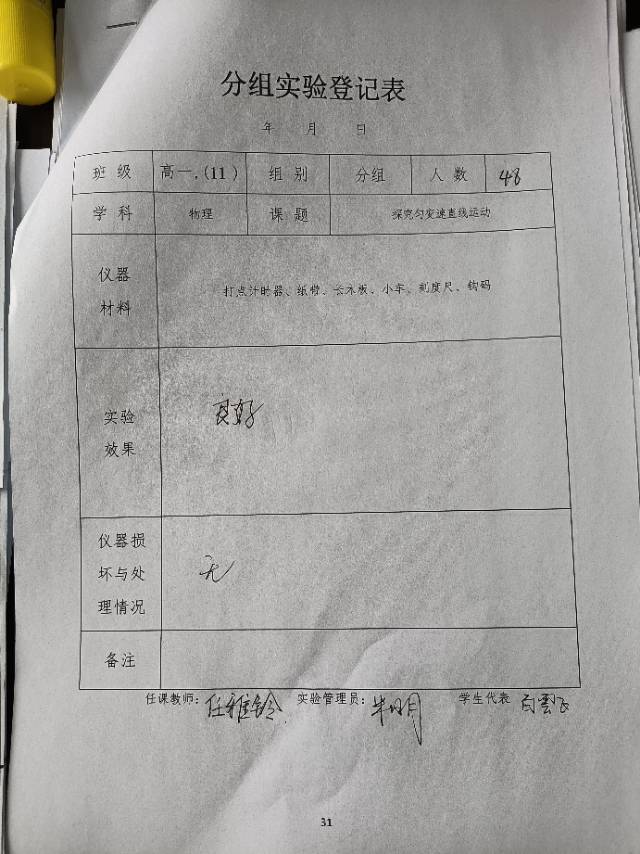 分组实验登记表
年 月 日
班级 高一.(11) 组别 分组 人数 48
学科 物理 课题 探究匀变速直线运动
仪器
材料
打点计时器、纸带、长木板、小车、刻度尺、钩码
实验
效果
良好
仪器损
坏与处
理情况
无
备注
任课教师：任雅铃 实验管理员： 学生代表
31